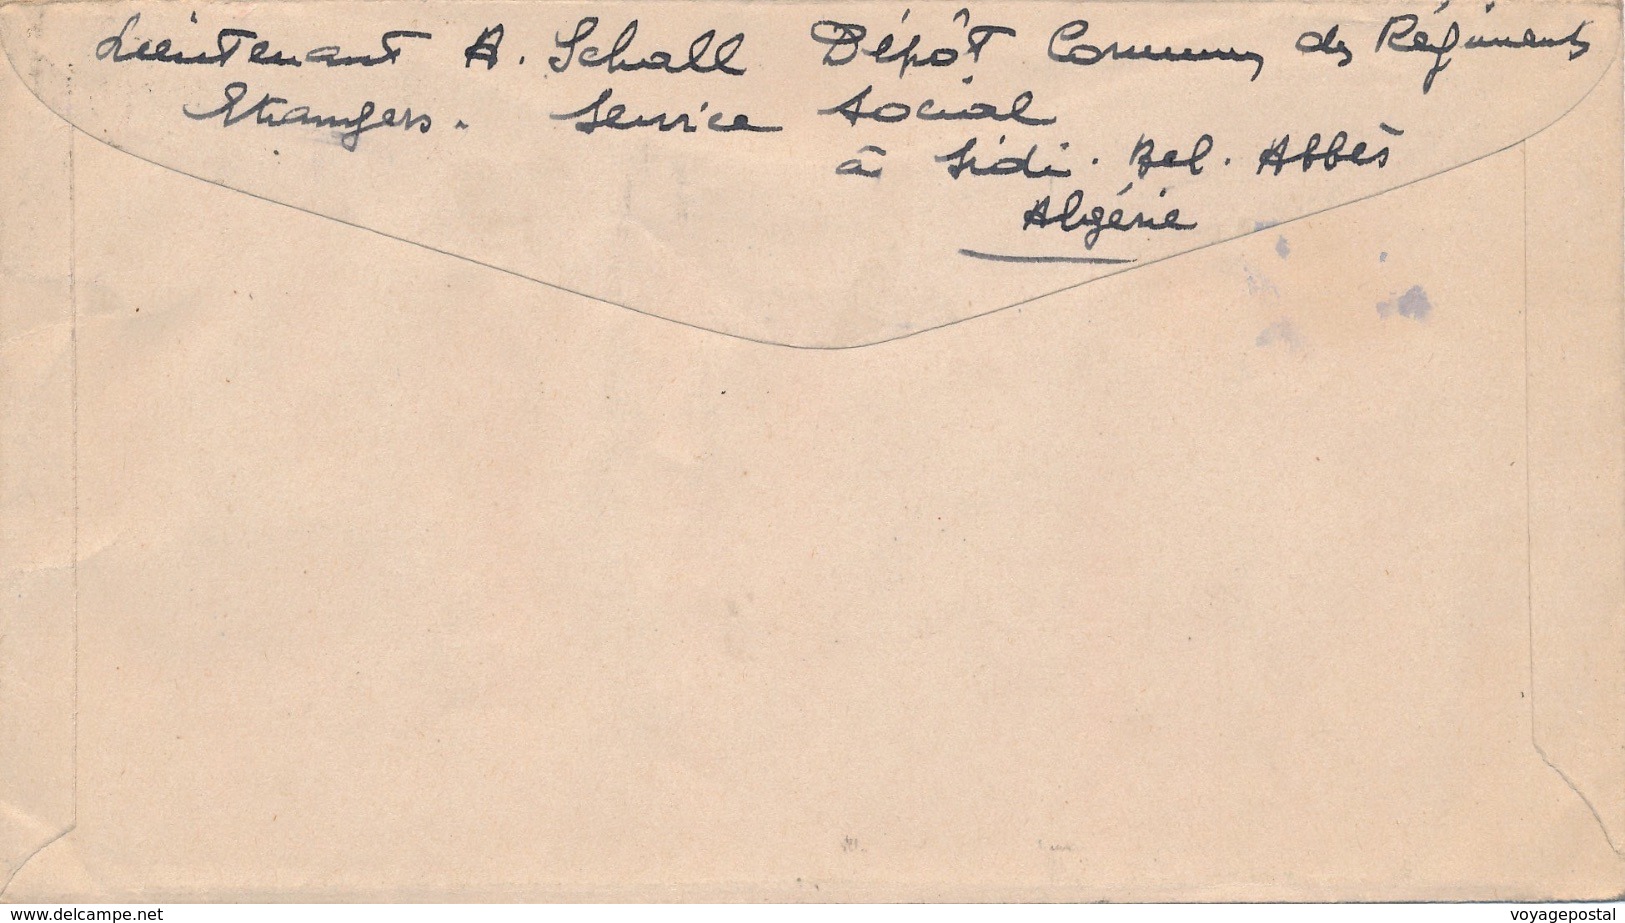 Lieutenant A. Schall Dépôt Commun des Régiments
Etrangers. Service Social
à Sidi. Bel. Abbès
Algérie
www.delcampe.net
voyagepostal